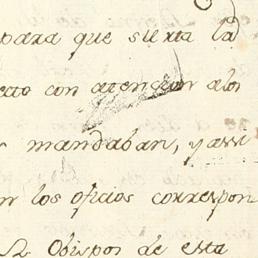 para que sierta la
ecto con atencion a los
mandaban, y assi
n los oficios correspon
Obispos de esta